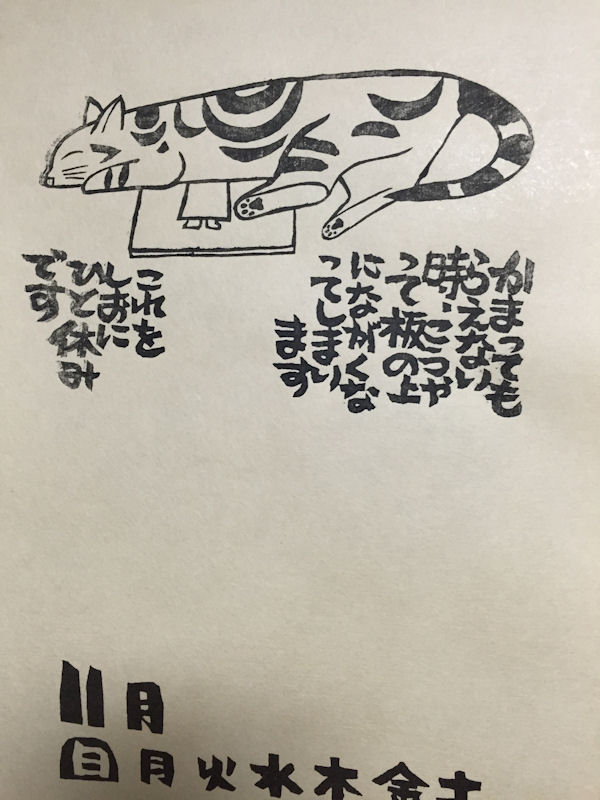 かまっても
らえない
時、こうや
って板の上
にながくな
ってしまい
ます
これを
しおに
ひと休み
です
11月
日月火水木金土